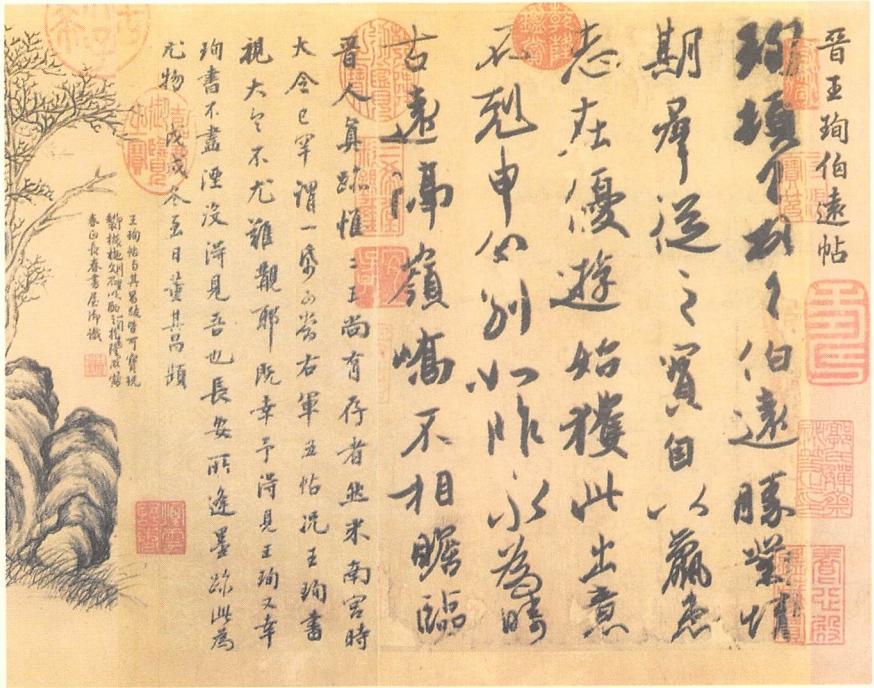 晉王珣伯遠帖
珣頓首頓首伯遠勝業情
期群從之寶自以羸患
志在優遊始獲此出意
不剋申分別如昨永為疇
古遠隔嶺嶠不相瞻臨
晉人真跡惟二王尚有存者然米南宮時
大令已罕謂一紙可當右軍五帖況王珣書
視大令不尤難覯耶既幸予得見王珣又幸
珣書不盡湮沒得見吾也長安所逢墨跡此為
尤物 戊戌冬至日董其昌題
王珣帖與其昌跋皆可寶玩
枝文石以 之乾隆丙寅
春正長春書屋御識
乾隆鑑賞
嘉慶御覽之寶